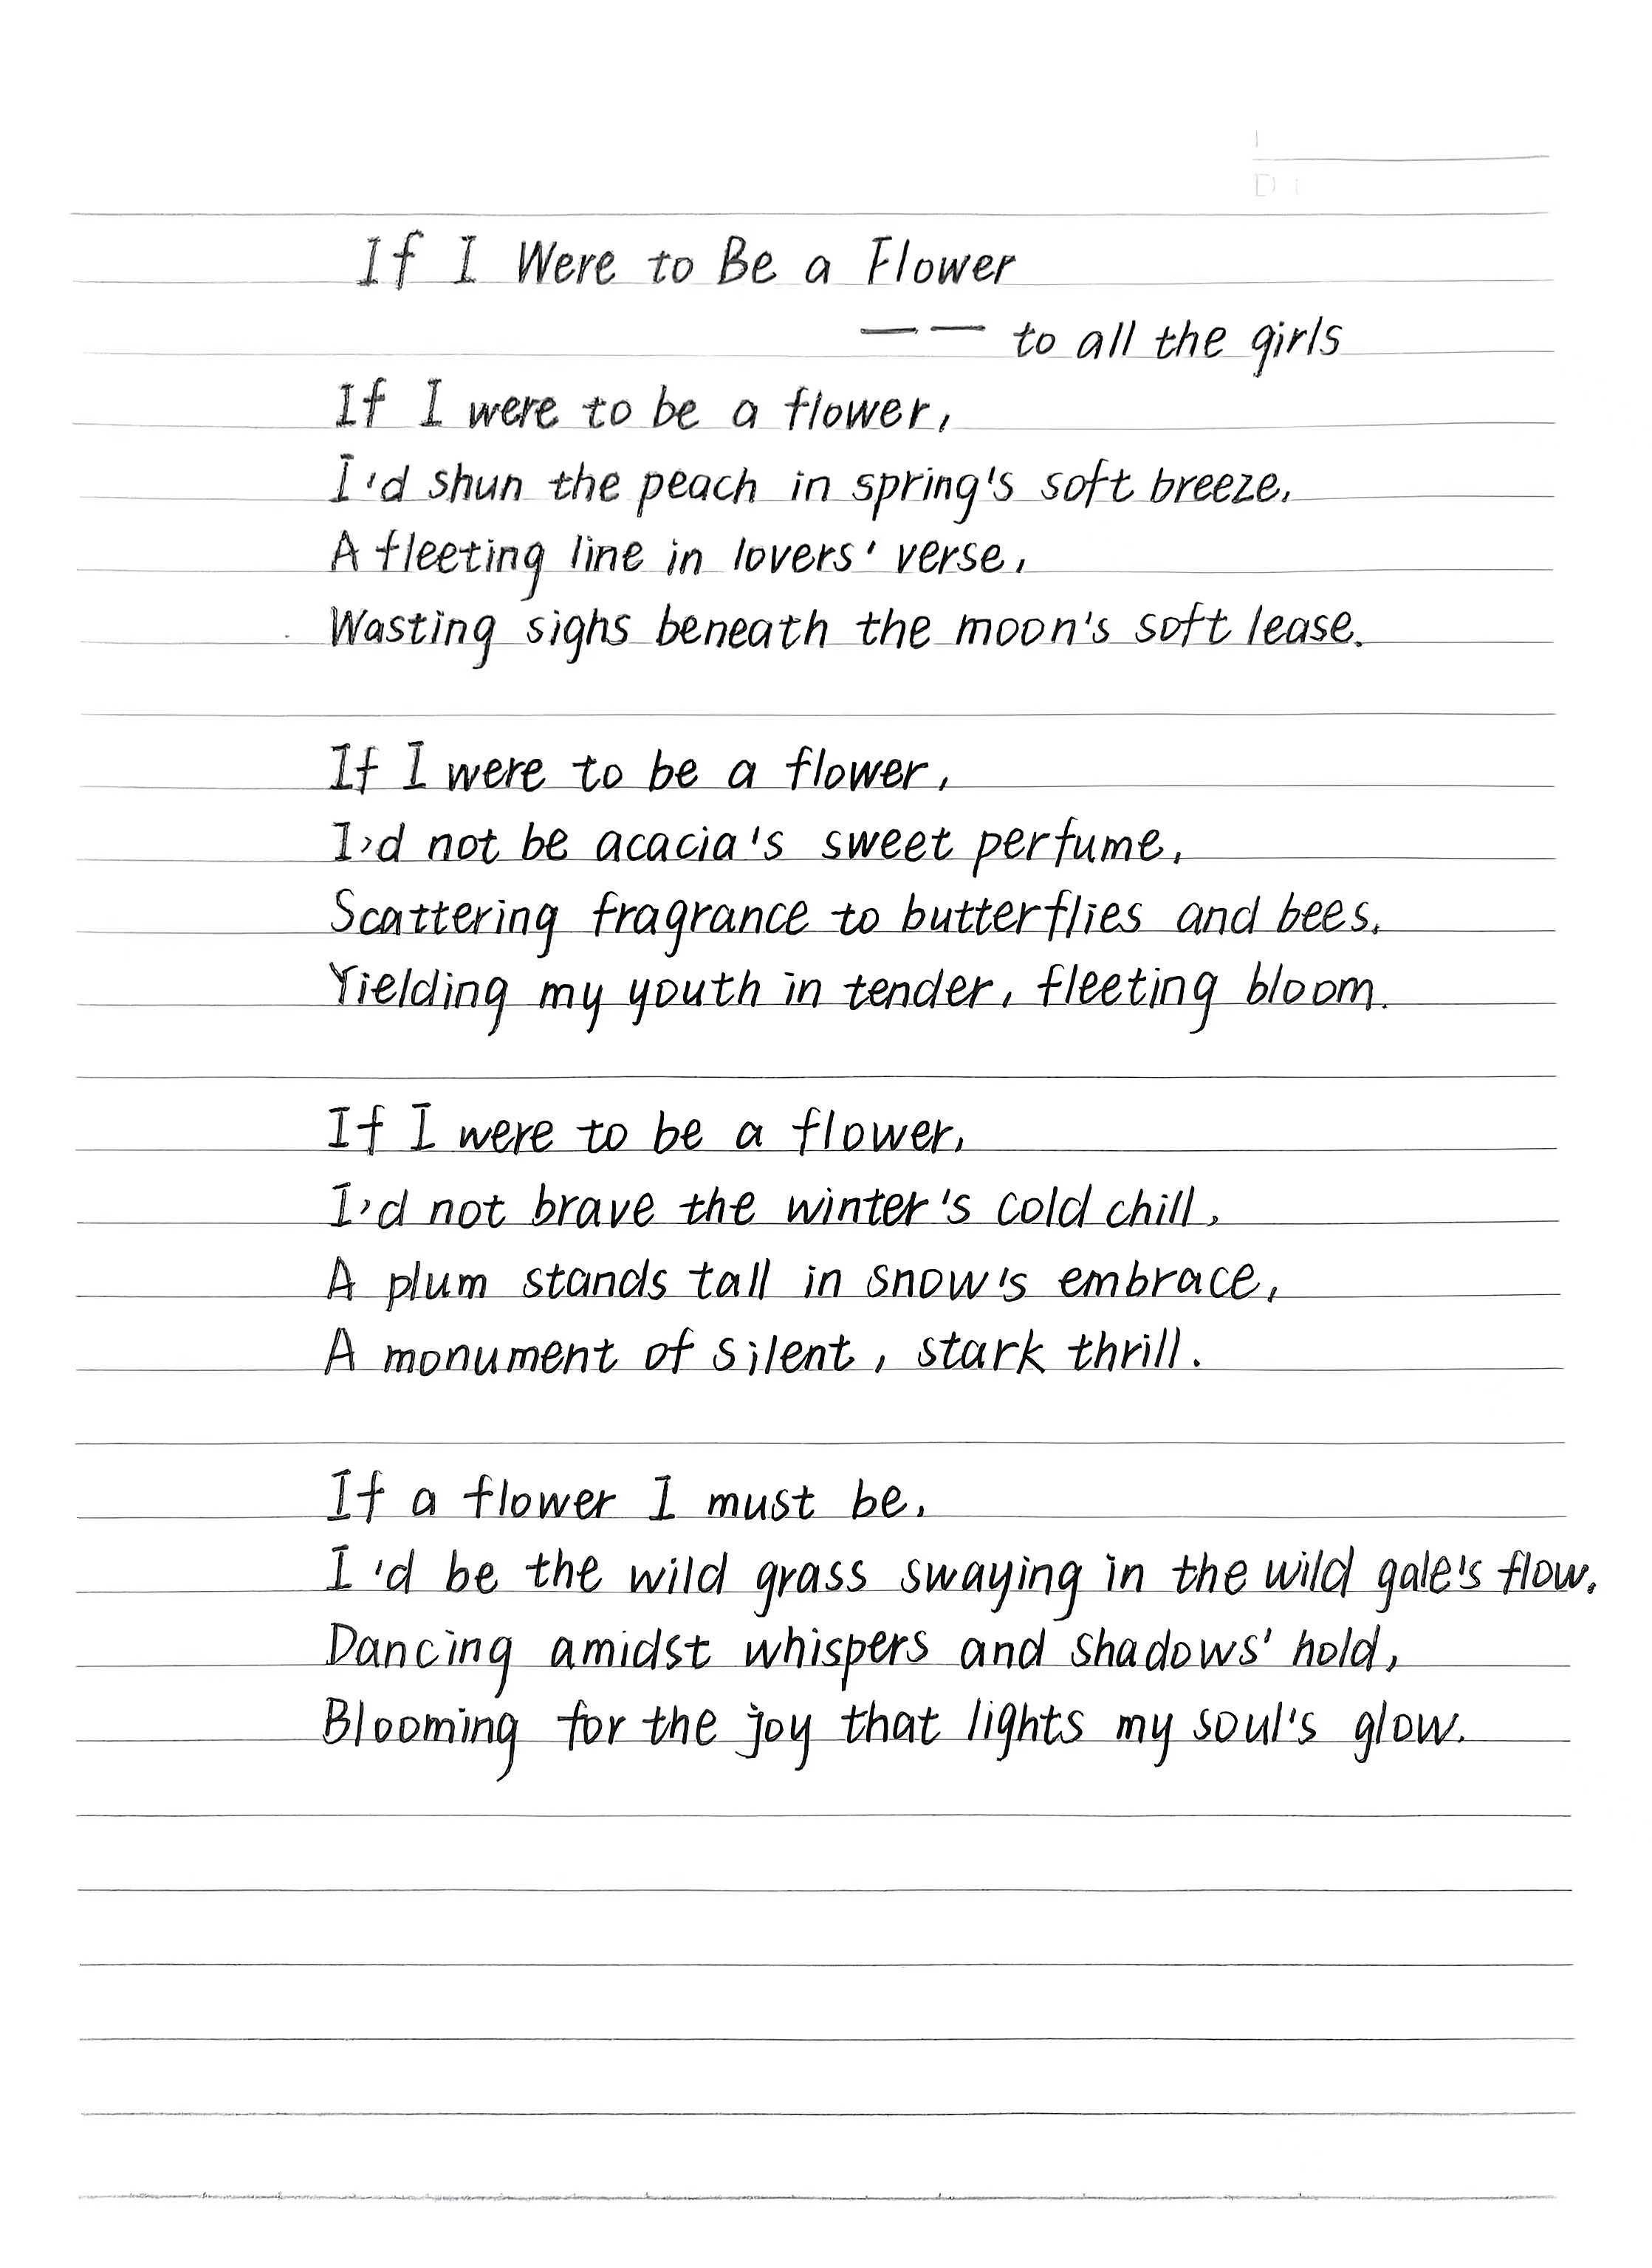 If I Were to Be a Flower
—— to all the girls
If I were to be a flower,
I'd shun the peach in spring's soft breeze,
A fleeting line in lovers' verse,
Wasting sighs beneath the moon's soft lease.
If I were to be a flower,
I'd not be acacia's sweet perfume,
Scattering fragrance to butterflies and bees,
Yielding my youth in tender, fleeting bloom.
If I were to be a flower,
I'd not brave the winter's cold chill,
A plum stands tall in snow's embrace,
A monument of silent, stark thrill.
If a flower I must be,
I'd be the wild grass swaying in the wild gale's flow,
Dancing amidst whispers and shadows' hold,
Blooming for the joy that lights my soul's glow.